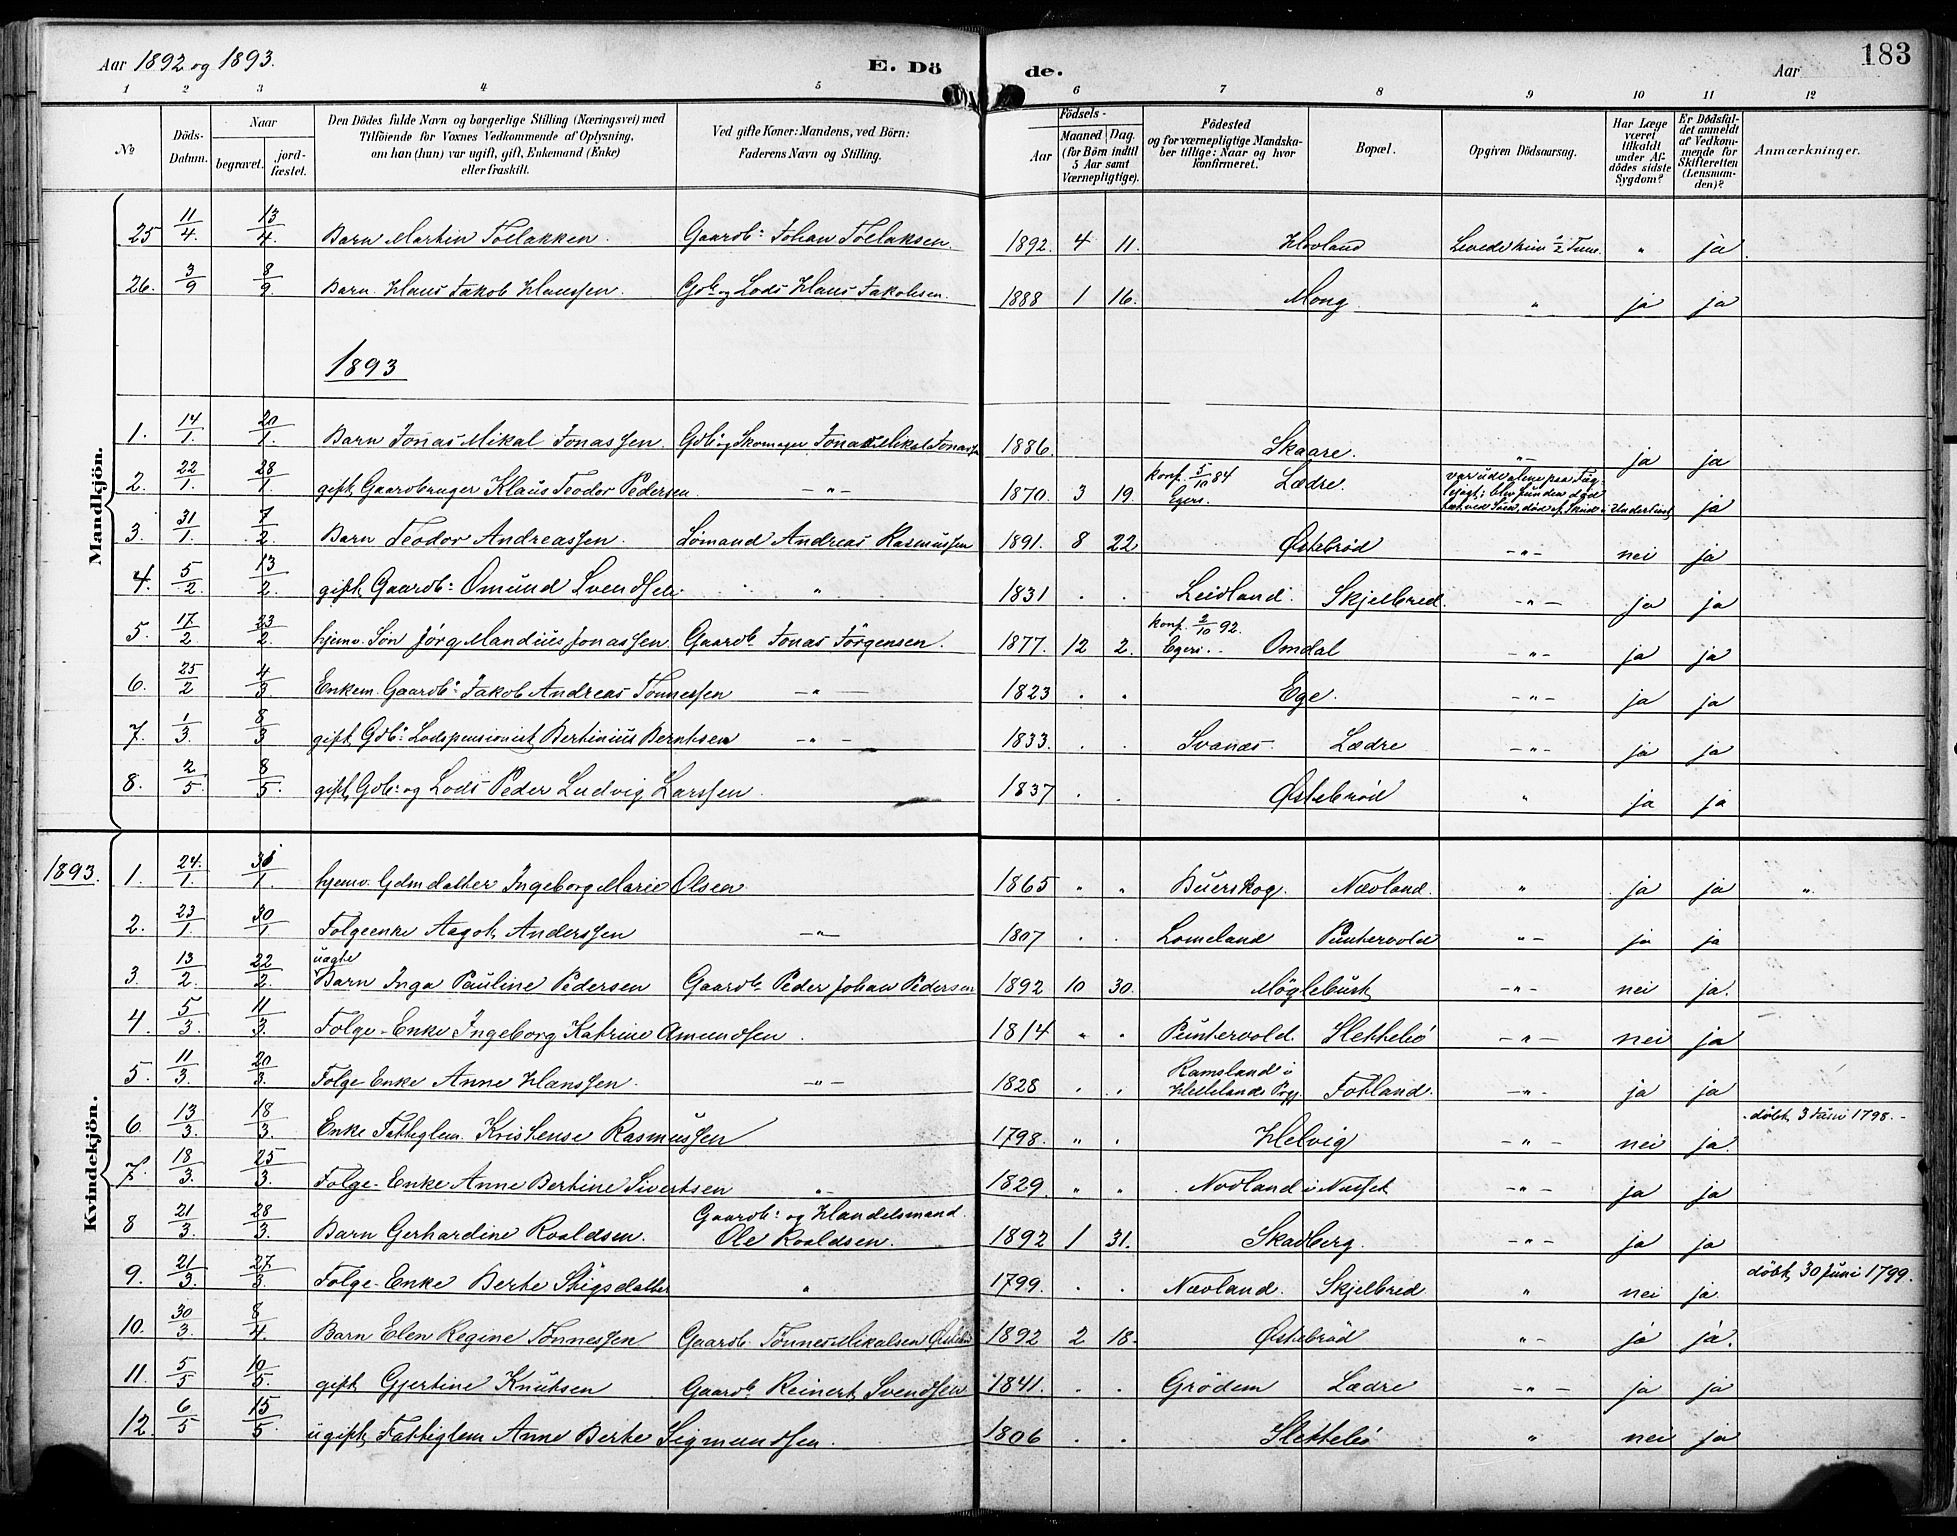 Aar 1892 og 1893. E. Dö de. Aar 183
1 2 3 4 5 6 7 8 9 10 11 12
No
Döds-Datum.
Naar
begravet.
jord-fæstet.
Den Dödes fulde Navn og borgerlige Stilling (Næringsvei) med
Tilföiende for Voxnes Vedkommende af Oplysning,
om han (hun) var ugift, gift, Enkemand (Enke)
eller fraskilt.
Ved gifte Koner: Mandens, ved Börn:
Faderens Navn og Stilling.
Födsels-
Aar
Maaned Dag.
(for Börn indtil
5 Aar samt
Værnepligtige).
Födested
og for værnepligtige Mandska-
ber tillige: Naar og hvor
konfirmeret.
Bopæl.
Opgiven Dödsaarsag.
Har Læge
været
tilkaldt
under Af-
dödes sidste
Sygdom?
Er Dødsfal-
det anmeldt
af Vedkom-
mende for
Skifteretten
(Lensman-
den)?
Anmærkninger.
Mandkjön.
25 11/4. 13/4. Barn Martin Tollakken. Gaardb: Johan Tollaksen. 1892. 4 11. Hovland Levede kun 1/2 Time. " ja
26. 3/9 8/9. Barn Hans Jakob Hanssen. Gdb: og Lods Hans Jakobsen. 1888 1 16. Mong " ja ja
1893
1. 14/1. 20/1. Barn Jonas Mikal Jonassen. Gdb: og Skomager Jonas Mikal Jonassen 1886. Skaare. -"- ja ja
2. 22/1. 28/1. gift, Gaardbruger Klaus Teodor Pedersen -"- 1870. 3 19. konf. 5/10 84 Egers. Lædre. var ude alene paa Fug- lejagt; blev funden død ja
3. 31/1. 7/2 Barn Teodor Andreassen. Sømand Andreas Rasmussen 1891. 8 22. Østebrød -"- nei ja
4. 5/2. 13/2. gift, Gaardb: Omund Svendsen. " 1831 . . Leidland. Skjelbred. -"- ja ja
5. 17/2. 23/2. hjemv. Søn Jørg Mandius Jonassen. Gaardb. Jonas Jørgensen. 1877. 12 2. konf. 2/10 92. Egers. Omdal -"- ja ja
6. 25/2 4/3 Enkem. Gaardb: Jakob Andreas Tønnessen -"- 1823 . . Ege. -"- ja ja
7. 1/3. 8/3 gift, Gdb: Lodspensionist Bertinius Berntsen -"- 1833. . . Svanæs. Lædre -"- ja ja
8. 2/5 8/5. gift, Gdb: og Lods Peder Ludvig Larssen. 1837 . . Østebrød " ja ja
Kvindekjön.
1893. 1. 24./1. 31/1. hjemv. Gdmdatter Ingeborg Marie Olsen 1865 " " Buerskog. Nævland. " ja ja ".
2. 23/1. 30/1. Folgeenke Aagot Anderssen -"- 1807 . . Lomeland Puntervold -"- ja ja
3. 13/2. 22/2. uægte Barn Inga Pauline Pedersen Gaardb. Peder Johan Pedersen 1892 10 30. Møglebust -"- nei ja.
4. 5/3. 11/3. Folge-Enke Ingeborg Katrine Amundsen. 1814 " " Puntervold. Slettebø -"- nei ja
5. 11/3. 20/3. Folge-Enke Anne Hanssen. -"- 1828 . . Ramsland i Hellelands Prgj. Fotland. -"- ja ja
6. 13/3. 18/3. Enke Fattiglem. Kristense Rasmussen 1798. " . Helvig -"- nei ja. døbt 3 Juni 1798.
7. 18/3. 25/3. Folge-Enke Anne Bertine Sivertsen " 1829. " " Nodland i -"- ja ja
8 21/3. 28/3. Barn Gerhardine Roaldsen. Gaardb: og Handelsmand. Ole Roaldsen. 1892 1 31. Skadberg. -"- ja ja
9. 21/3. 27/3. Folge-Enke Berte Stigsdatter " 1799. . . Nævland. Skjelbred " nei ja. døbt, 30 Juni 1799.
10. 30/3. 8/4. Barn Elen Regine Tønnessen Gaardb. Tønnes Mikalsen 1892 2 18. Østebrød " ja ja.
11. 5/5 10/5. gift, Gjertine Knutsen Gaardb. Reinert Svendsen 1841. . . Grødem Lædre -"- ja ja
12. 6/5 15/5. ugift, Fattiglem Anne Berte Sigmundsen. 1806 . . Slettebø " nei ja